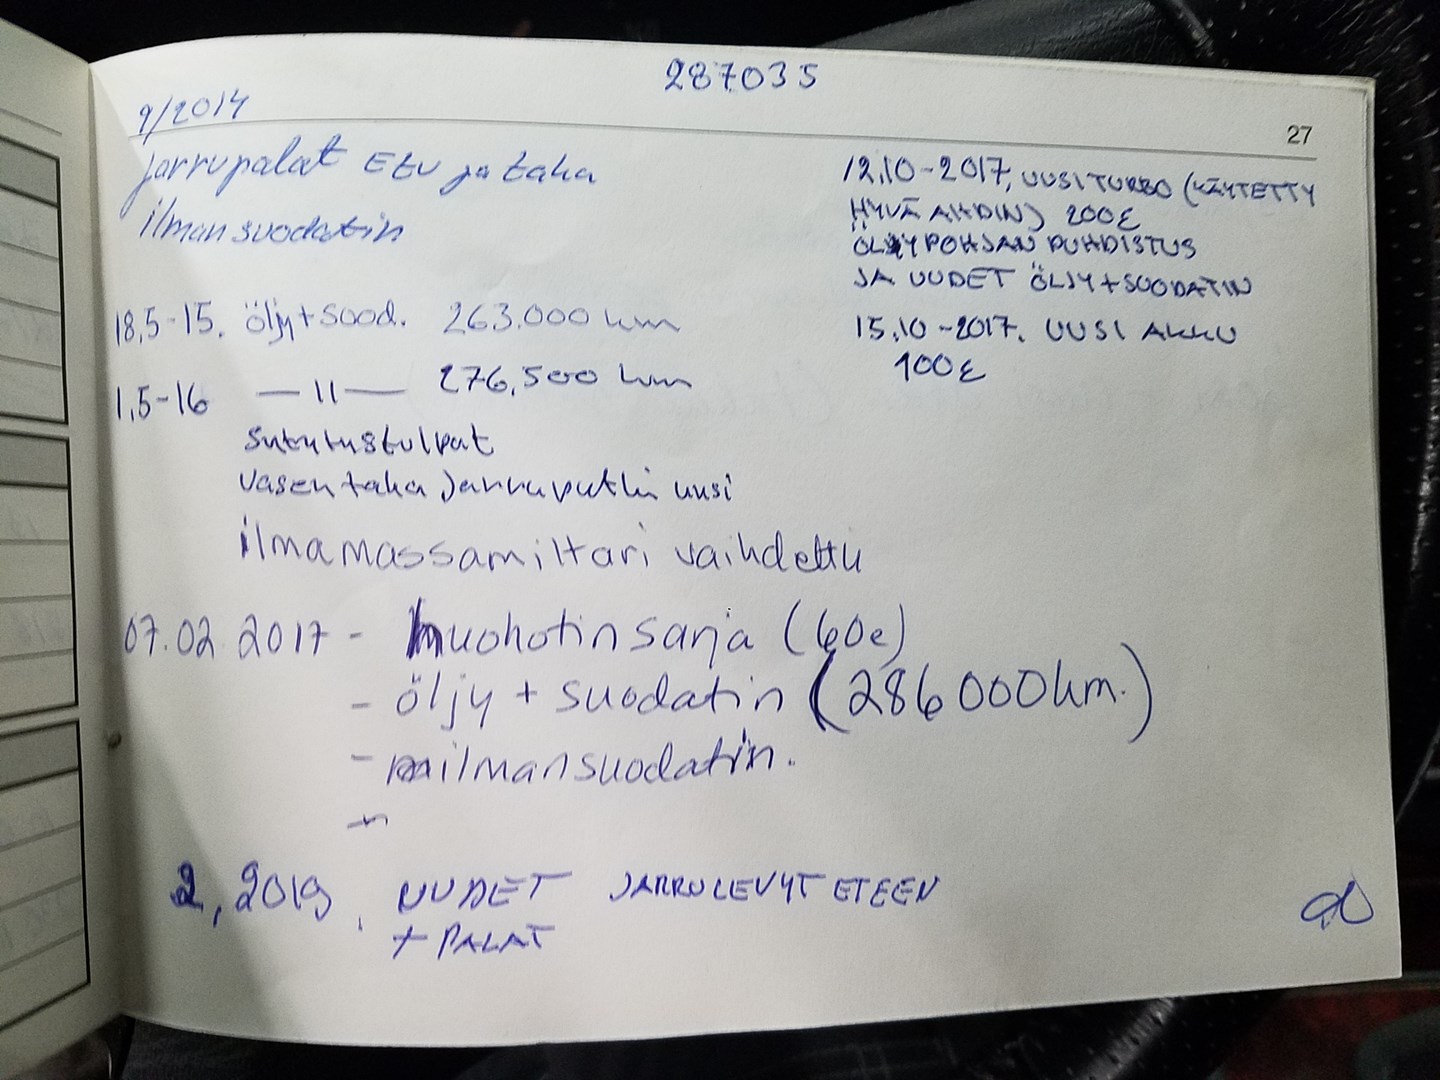 287035
27
9/2014
jarrupalat Etu ja taha
ilmansuodatin
18,5-15. öljy+suod. 263.000 km
1,5-16 — 11 — 276,500 km
Sytytystulpat
Vasen taka Jarruputki uusi
ilmamassamittari vaihdettu
07.02.2017 - huohotinsarja (60e)
- öljy + suodatin (286000km.)
- ilmansuodatin.
2, 2019, UUDET JARRULEVYT ETEEN
+ PALAT
12,10-2017, UUSI TURBO (KÄYTETTY
HYVÄ AHDIN) 200€
ÖLJYPOHJAN PUHDISTUS
JA UUDET ÖLJY+SUODATIN
15,10-2017. UUSI AKKU
100€